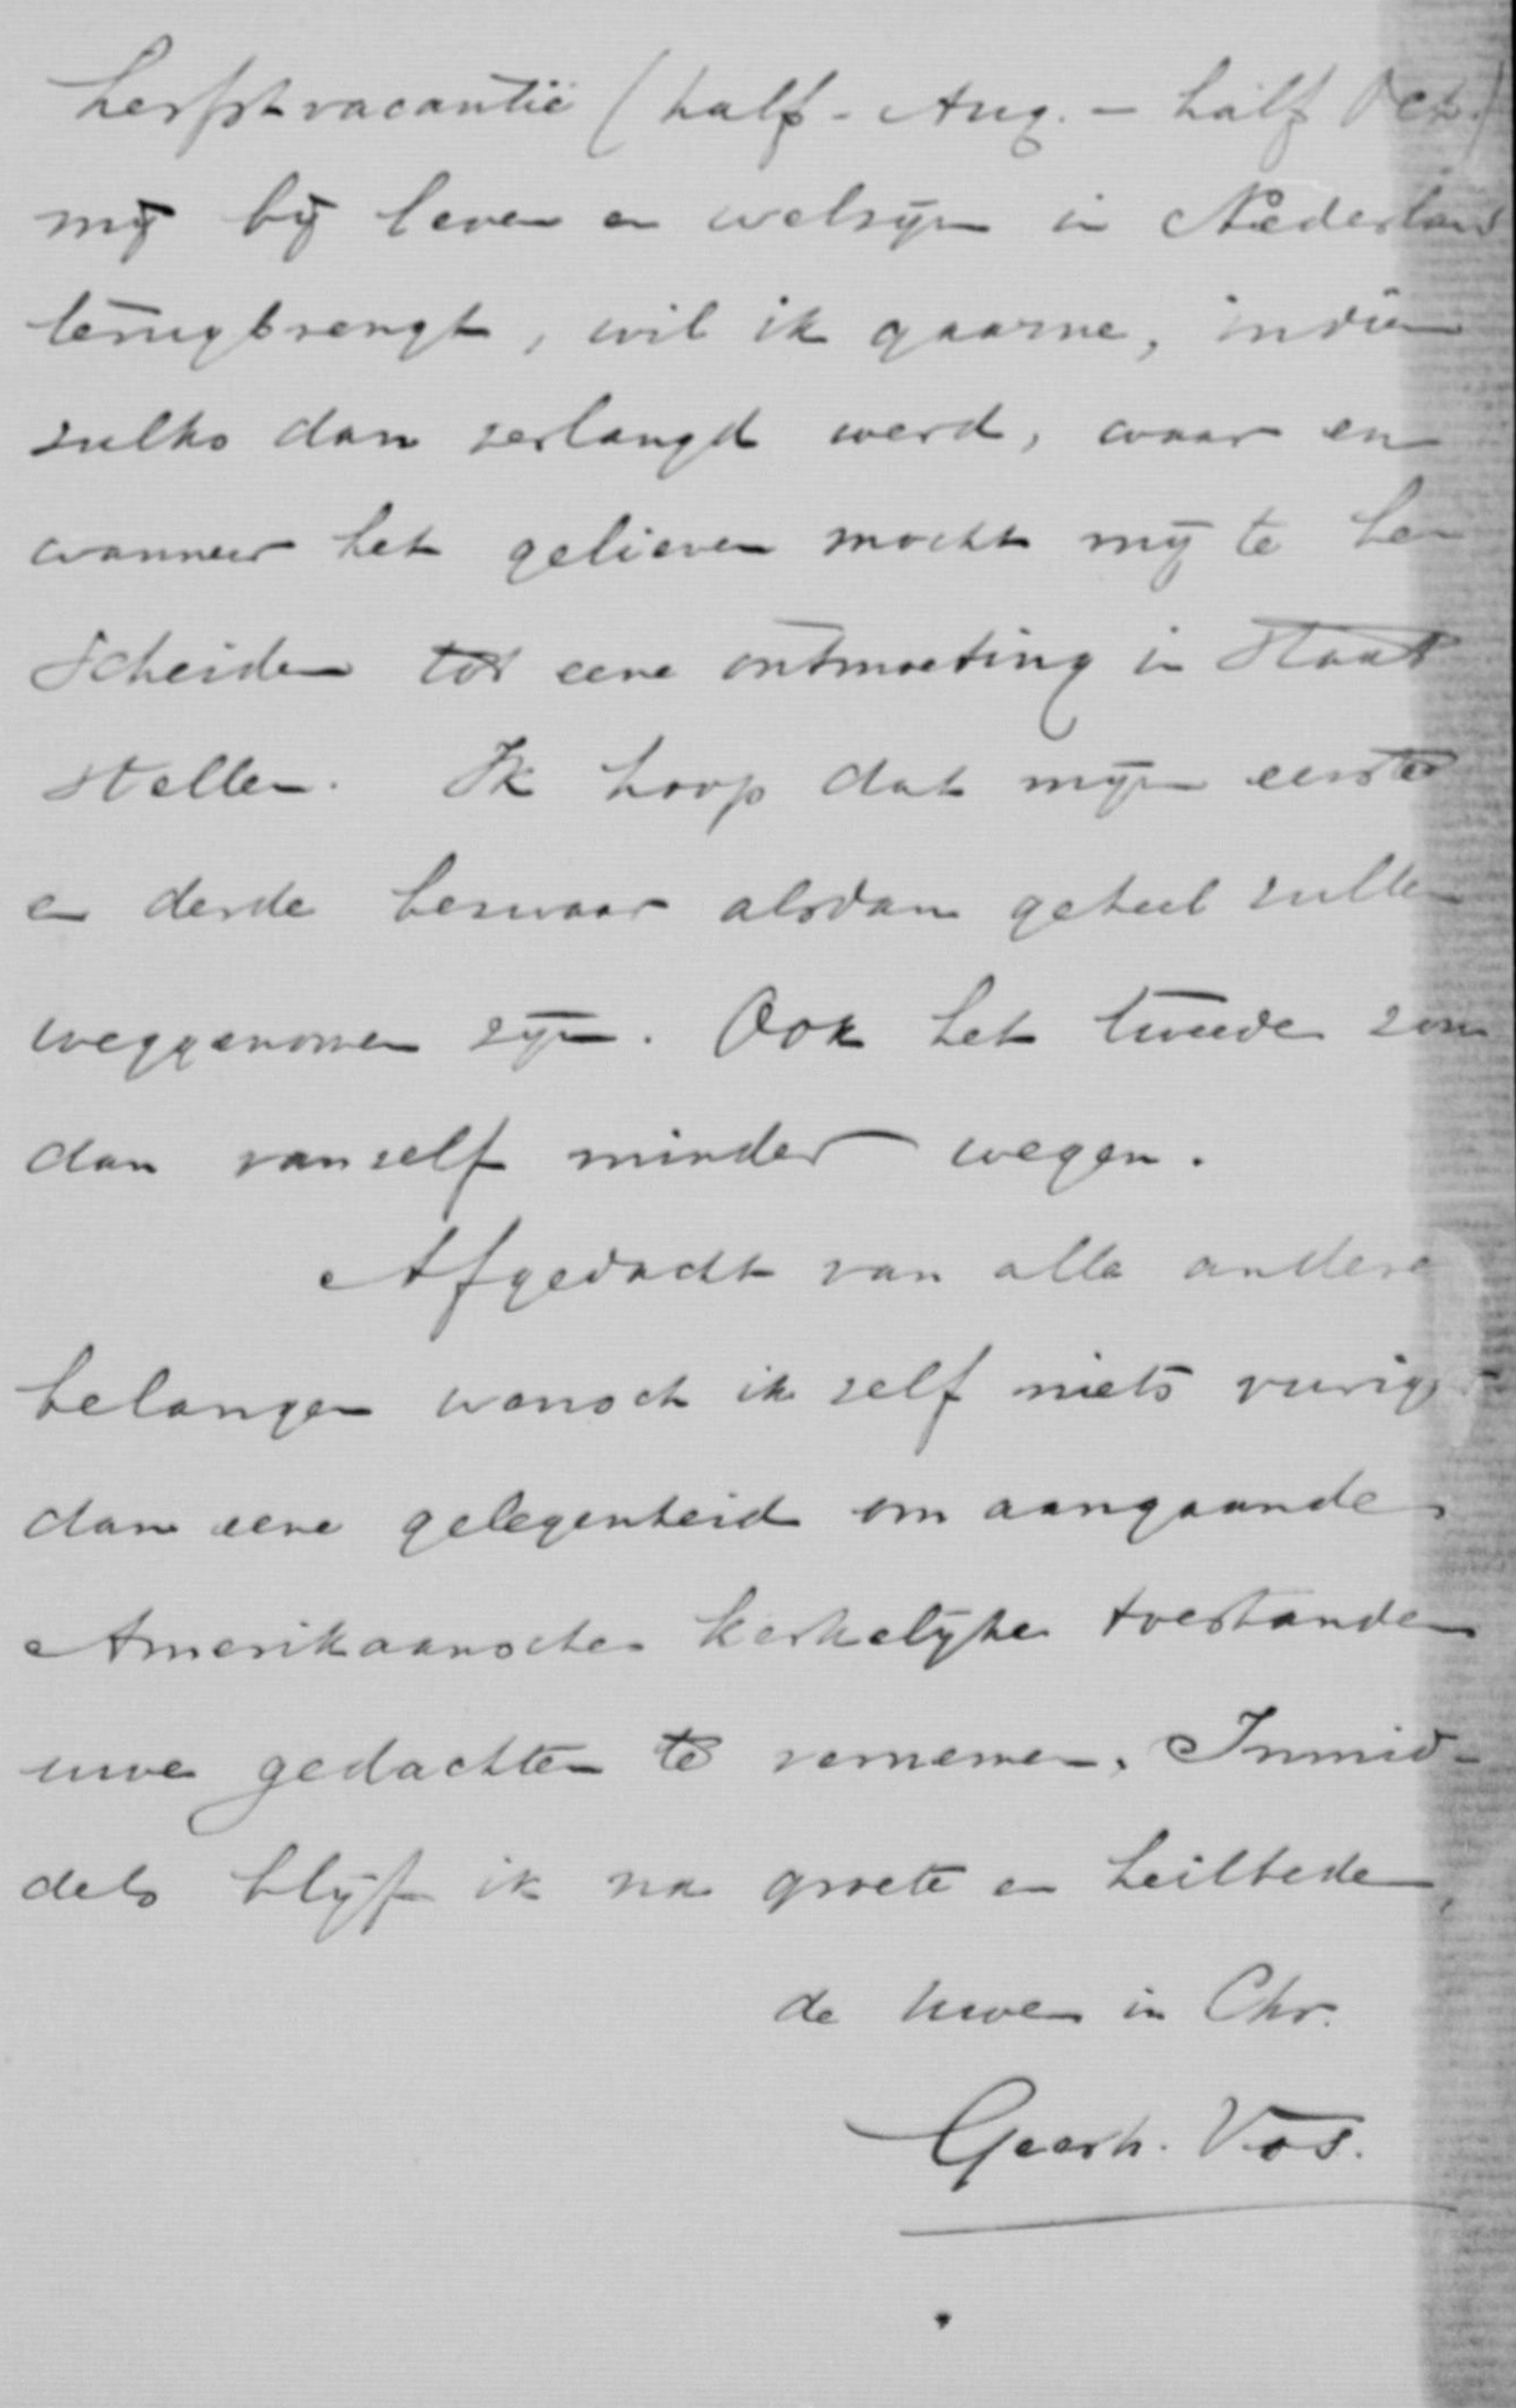 herfstvacantie (half-Aug. – half Oct.)
mij bij leven en welzijn in Nederland
terugbrengt, wil ik gaarne, indien
zulks dan verlangd werd, waar en
wanneer het gelieven mocht mij te be
scheiden tot eene ontmoeting in staat
stellen. Ik hoop dat mijn eerste
en derde bezwaar alsdan geheel zullen
weggenomen zijn. Ook het tweede zou
dan vanzelf minder wegen.
Afgedacht van alle andere
belangen wensch ik zelf niets vuriger
dan eene gelegenheid om aangaande
Amerikaansche kerkelijke toestanden
uwe gedachten te vernemen. Inmid-
dels blijf ik na groete en heilbede,
de uwe in Chr.
Geerh. Vos.